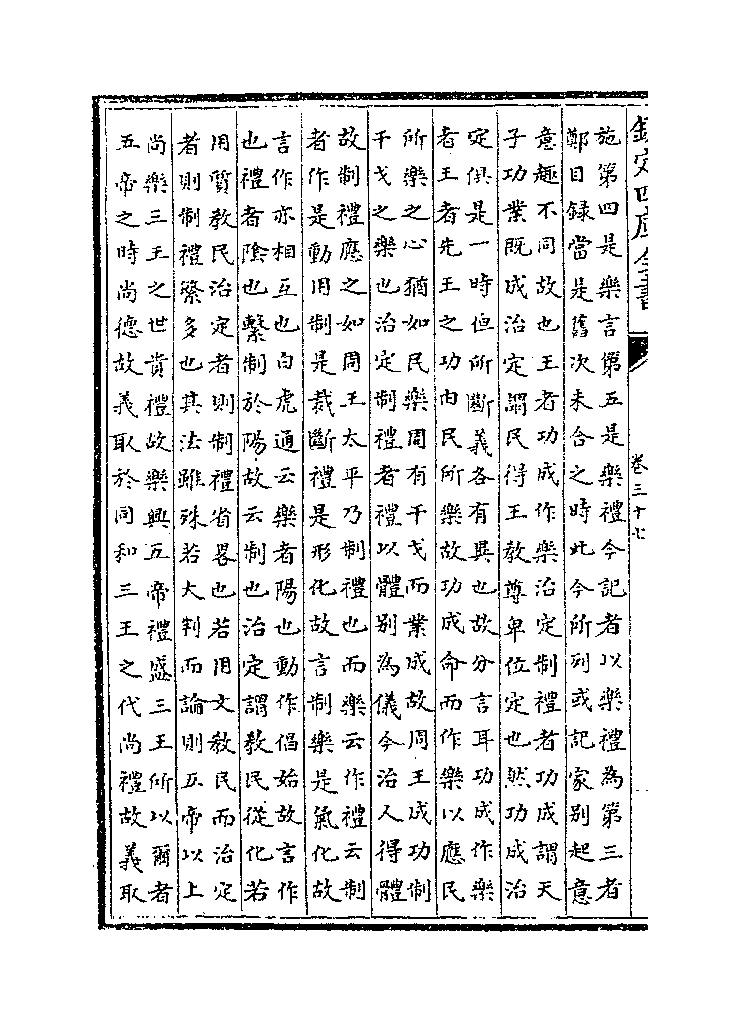 欽定四庫全書
卷三十七
施第四是樂言第五是樂禮今記者以樂禮為第三者
鄭目録當是舊次未合之時此今所列或記家别起意
意趣不同故也王者功成作樂治定制禮者功成謂天
子功業既成治定謂民得王教尊卑位定也然功成治
定俱是一時但所斷義各有異也故分言耳功成作樂
者王者先王之功由民所樂故功成命而作樂以應民
所樂之心猶如民樂周有干戈而業成故周王成功制
干戈之樂也治定制禮者禮以體别為儀今治人得體
故制禮應之如周王太平乃制禮也而樂云作禮云制
者作是動用制是裁斷禮是形化故言制樂是氣化故
言作亦相互也白虎通云樂者陽也動作倡始故言作
也禮者陰也繫制於陽故云制也治定謂教民從化若
用質教民治定者則制禮省畧也若用文教民而治定
者則制禮繁多也其法雖殊若大判而論則五帝以上
尚樂三王之世貴禮故樂興五帝禮盛三王所以爾者
五帝之時尚德故義取於同和三王之代尚禮故義取